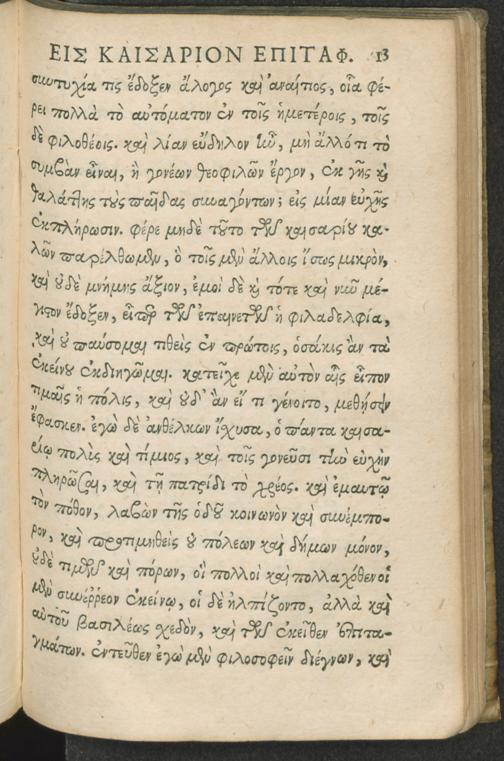 ΕΙΣ ΚΑΙΣΑΡΙΟΝ ΕΠΙΤΑΦ. 13
συντυχία τις ἔδοξεν ἄλογος καὶ ἀναίτιος, οἷα φέ-
ρει πολλὰ τὸ αὐτόματον ἐν τοῖς ἡμετέροις, τοῖς
δὲ φιλοθέοις. καὶ λίαν εὔδηλον ἦν, μὴ ἄλλό τι τὸ
συμβὰν εἶναι, ἢ γονέων θεοφιλῶν ἔργον, ἐκ γῆς κỳ
θαλάττης τοὺς παῖδας συναγόντων; εἰς μίαν εὐχῆς
ἐκπλήρωσιν. φέρε μηδὲ τοῦτο τῶν καισαρίου κα-
λῶν παρέλθωμεν, ὃ τοῖς μὲν ἄλλοις ἴσως μικρὸν,
καὶ οὐδὲ μνήμης ἄξιον, ἐμοὶ δὲ καὶ τότε καὶ νῦν μέ-
γιστον ἔδοξεν, εἴπερ τῶν ἐπαινετῶν ἡ φιλαδελφία,
καὶ οὐ παύσομαι τιθεὶς ἐν πρώτοις, ὁσάκις ἂν τὰ
ἐκείνου ἐκδιηγῶμαι. κατεῖχε μὲν αὐτὸν αἷς εἶπον
τιμαῖς ἡ πόλις, καὶ οὐδ' ἂν εἴ τι γένοιτο, μεθήσειν
ἔφασκεν. ἐγὼ δὲ ἀνθέλκων ἴσχυσα, ὁ πάντα καισα-
ρίῳ πολὺς καὶ τίμιος, καὶ τοῖς γονεῦσι τὴν εὐχὴν
πληρῶσαι, καὶ τῇ πατρίδι τὸ χρέος. καὶ ἐμαυτῷ
τὸν πόθον, λαβὼν τῆς ὁδοῦ κοινωνὸν καὶ συνέμπο-
ρον, καὶ προτιμηθεὶς οὐ πόλεων καὶ δήμων μόνον,
οὐδὲ τιμῶν καὶ πόρων, οἳ πολλοὶ καὶ πολλαχόθεν οἱ
μὲν συνέρρεον ἐκείνῳ, οἱ δὲ ἠλπίζοντο, ἀλλὰ καὶ
αὐτοῦ βασιλέως σχεδὸν, καὶ τῶν ἐκεῖθεν ἐπιτα-
γμάτων. ἐντεῦθεν ἐγὼ μὲν φιλοσοφεῖν διέγνων, καὶ